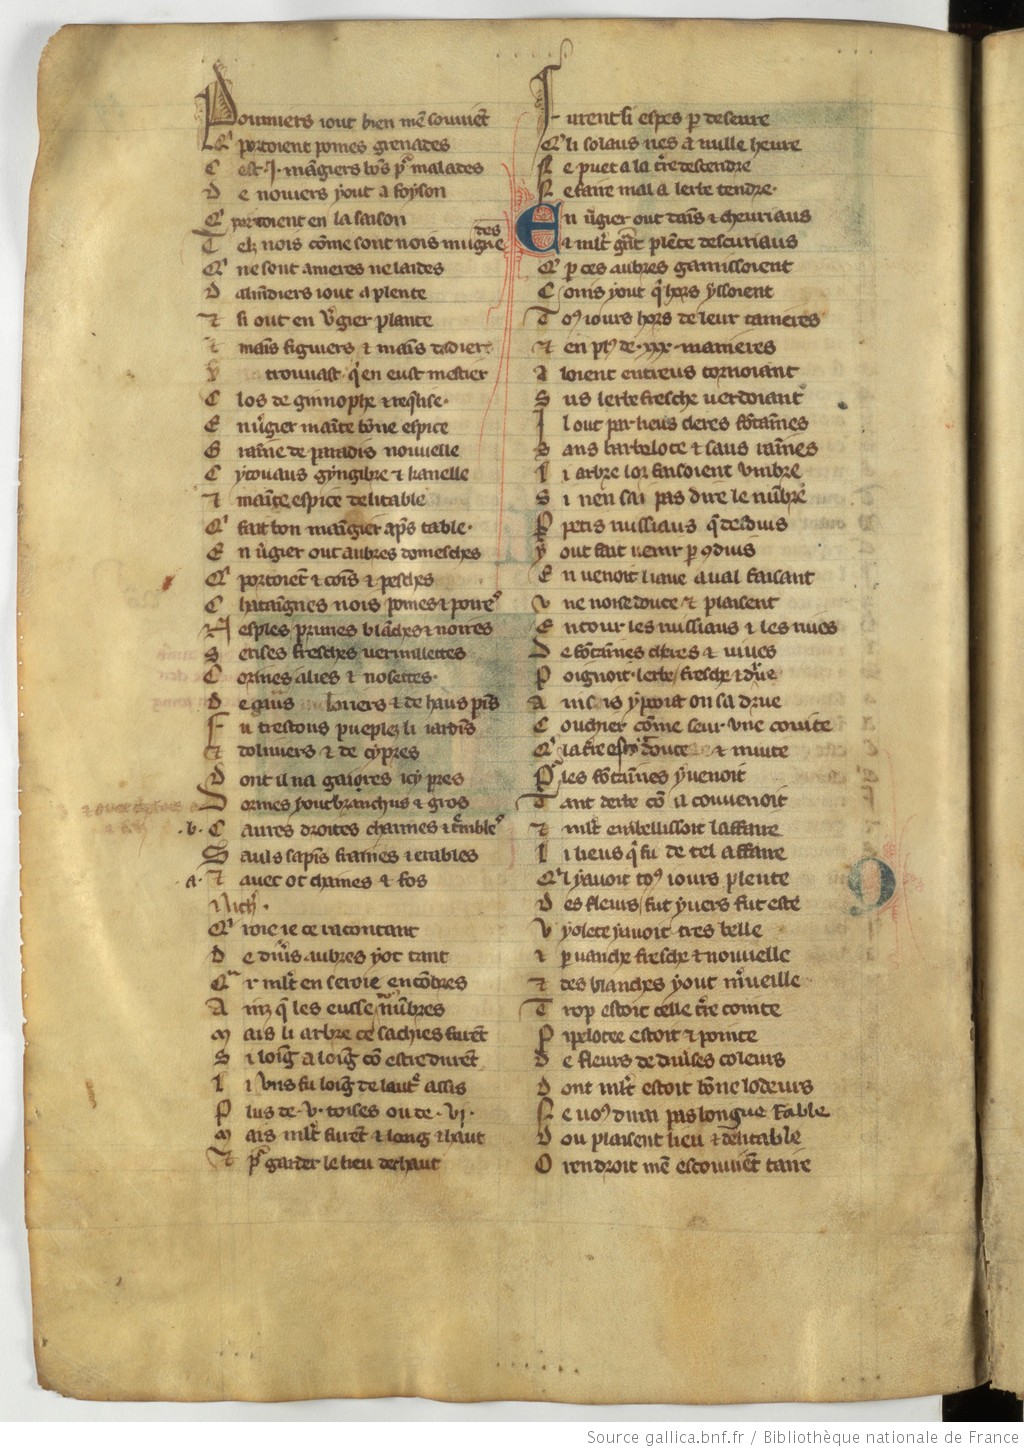 Pommiers iout bien me souuiet
Qi portoient pomes grenades
C est .I. mangiers bons pr malades
D e noiers yout a foyson
Qi portoient en la saison
T elz nois come sont nois mugue
des
Qi ne sont ameres ne laides
D almdiers iout a plente
Et si out en vgier plante
t mais figuiers & mais dadiers
trouuast qi en eust mestier
C los de girnophe & reqlise.
E n ugier mainte bone espice
G raine de paradis nouuelle
C ytouaus gyngibre & kanelle
Et mainte espice delitable
Qi fait bon mangier aps table.
E n ugier out aubres domesches
Qi portoiet & coins & pesches
C hataignes nois pomes & poires
N esples prunes blanches & noires
S erises fresches uermillettes
C ormes alies & nosettes.
D e gaus loriers & de haus pins
F u trestous pueplez li iardins
Et doliuiers & de cypres
D ont il na gaires icy pres
D ormes yout branchus & gros
.b. C aures droites charmes & trembles
S auls sapins fraines & erables
.a. Et auec ot chaines & fos
Nich.
Qi roie ie ce racontant
D e diuers aubres yot tant
Qr mlt en seroie encobres
A inz q les eusse nubres
M ais li arbre ce sachies furet
S i loig a loig co estre durent
L i vns fu loig de lautre assis
P lus de .V. toises ou de .VI.
M ais mlt furet & long & haut
Et pr garder le lieu de chaut
Furent si espes p deseure
Qi li solaus nes a nulle heure
N e puet a la tre descendre
N e faire mal a lerbe tendre.
En ugier out dains & cheuriaus
& mlt gant plente descuriaus
Qi p ces aubres garnissoient
C onis yout q hors yssoient
T os iours hors de leur tanieres
Et en plus de .xxx. manieres
A loient entreus tornoiant
S us lerbe fresche uerdoiant
I l out par lieus cleres fontaines
S ans barbelote & sans raines
L i arbre lor faisoient vmbre
S i nen sai pas dire le nubre
P petis nussiaus q desduis
y out fait uenir p 9duis
E n uenoit liaue aual faisant
V ne noise douce & plaisent
E ntour les nussiaus & les riues
D e fontaines cleres & uiues
P oignoit lerbe fresche & drue
A insi is y poist on sa drue
C ouchier come seur vne couite
Qr la tre est douce & muite
Pr les fontaines y uenoit
T ant derbe co il couuenoit
Et mlt embellissoit laffaire
L i lieus q fu de tel affaire
Qil yauoit tos iours plente
D es fleurs fut yuers fut este
V yolete yauoit tres belle
& puanche fresche & nouuelle
Et des blanches yout merueille
T rop estoit celle tre cointe
P ipelotee estoit & pointe
D e fleurs de diuerses coleurs
D ont mlt estoit bone lodeurs
N e uos dirai pas longue fable
D ou plaisent lieu & delitable
O rendroit me escouuient taire
Source gallica.bnf.fr / Bibliothèque nationale de France